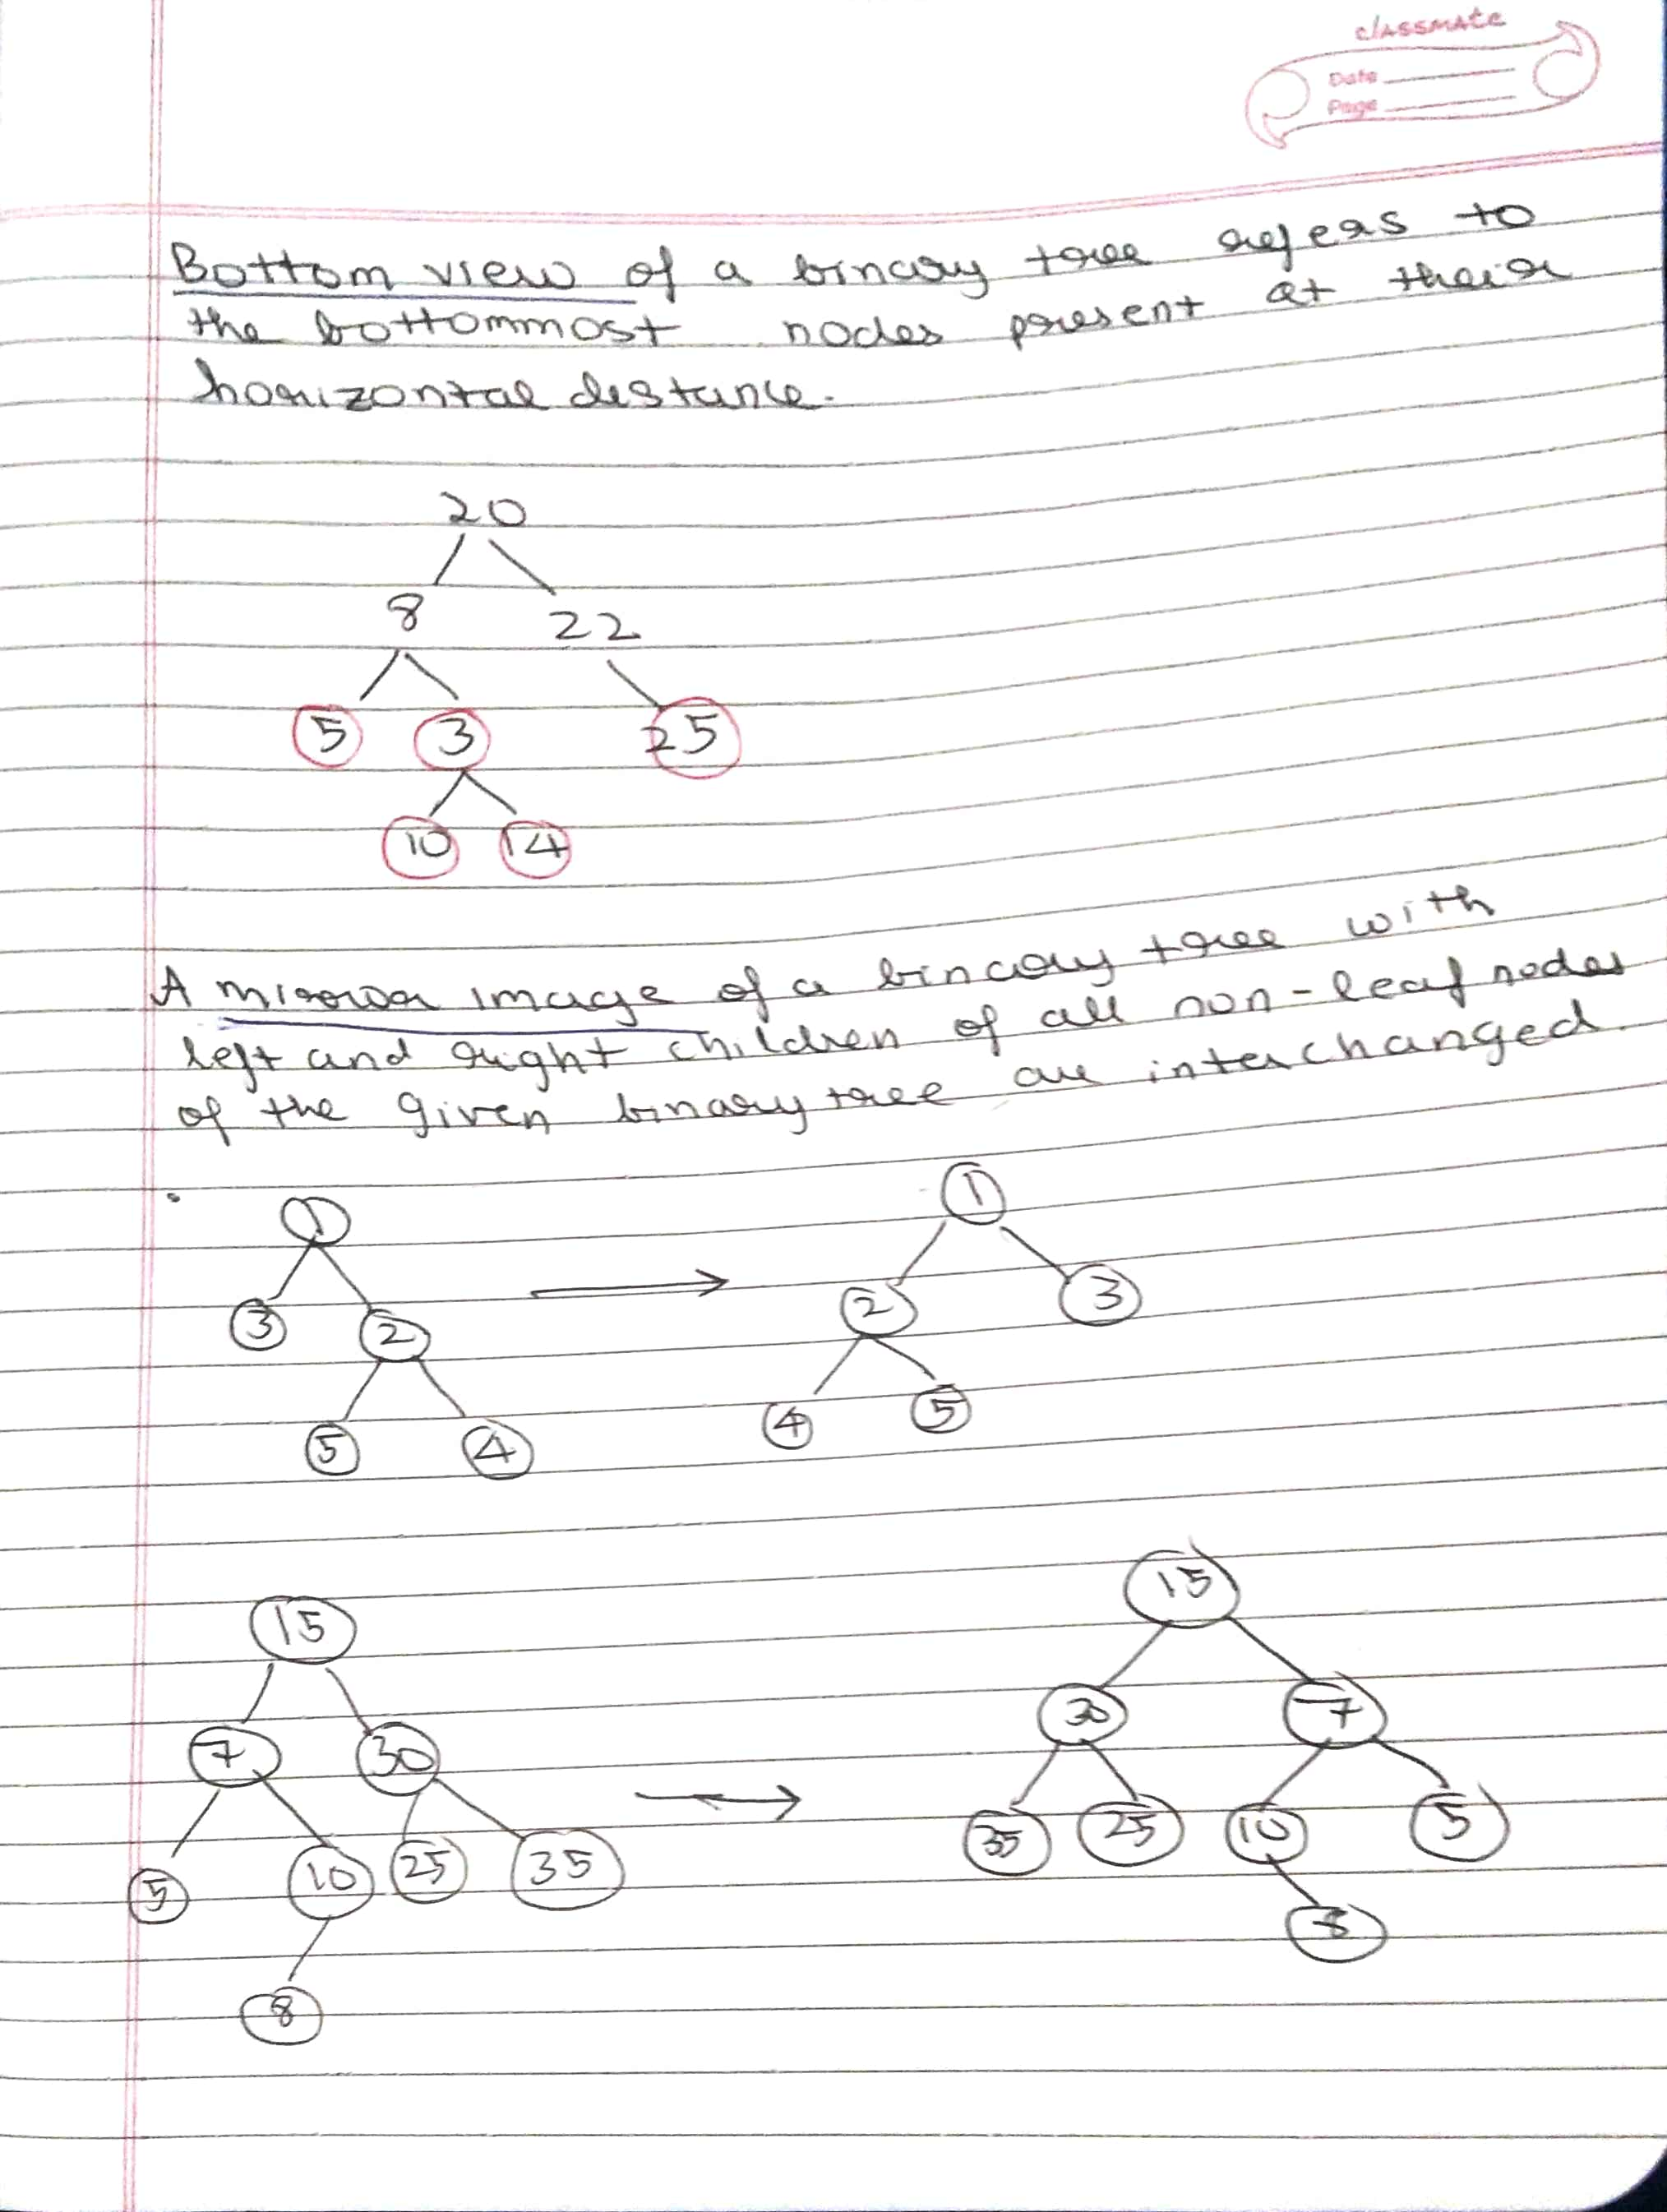 classmate
Date
Page
Bottom view of a binary tree refers to
the bottommost nodes present at their
horizontal distance.
20
8 22
5 3 25
10 14
A mirror image of a binary tree with
left and right children of all non-leaf nodes
of the given binary tree are interchanged.
1 1
3 2 2 3
5 4 4 5
15 15
7 30 30 7
5 10 25 35 35 25 10 5
8 8